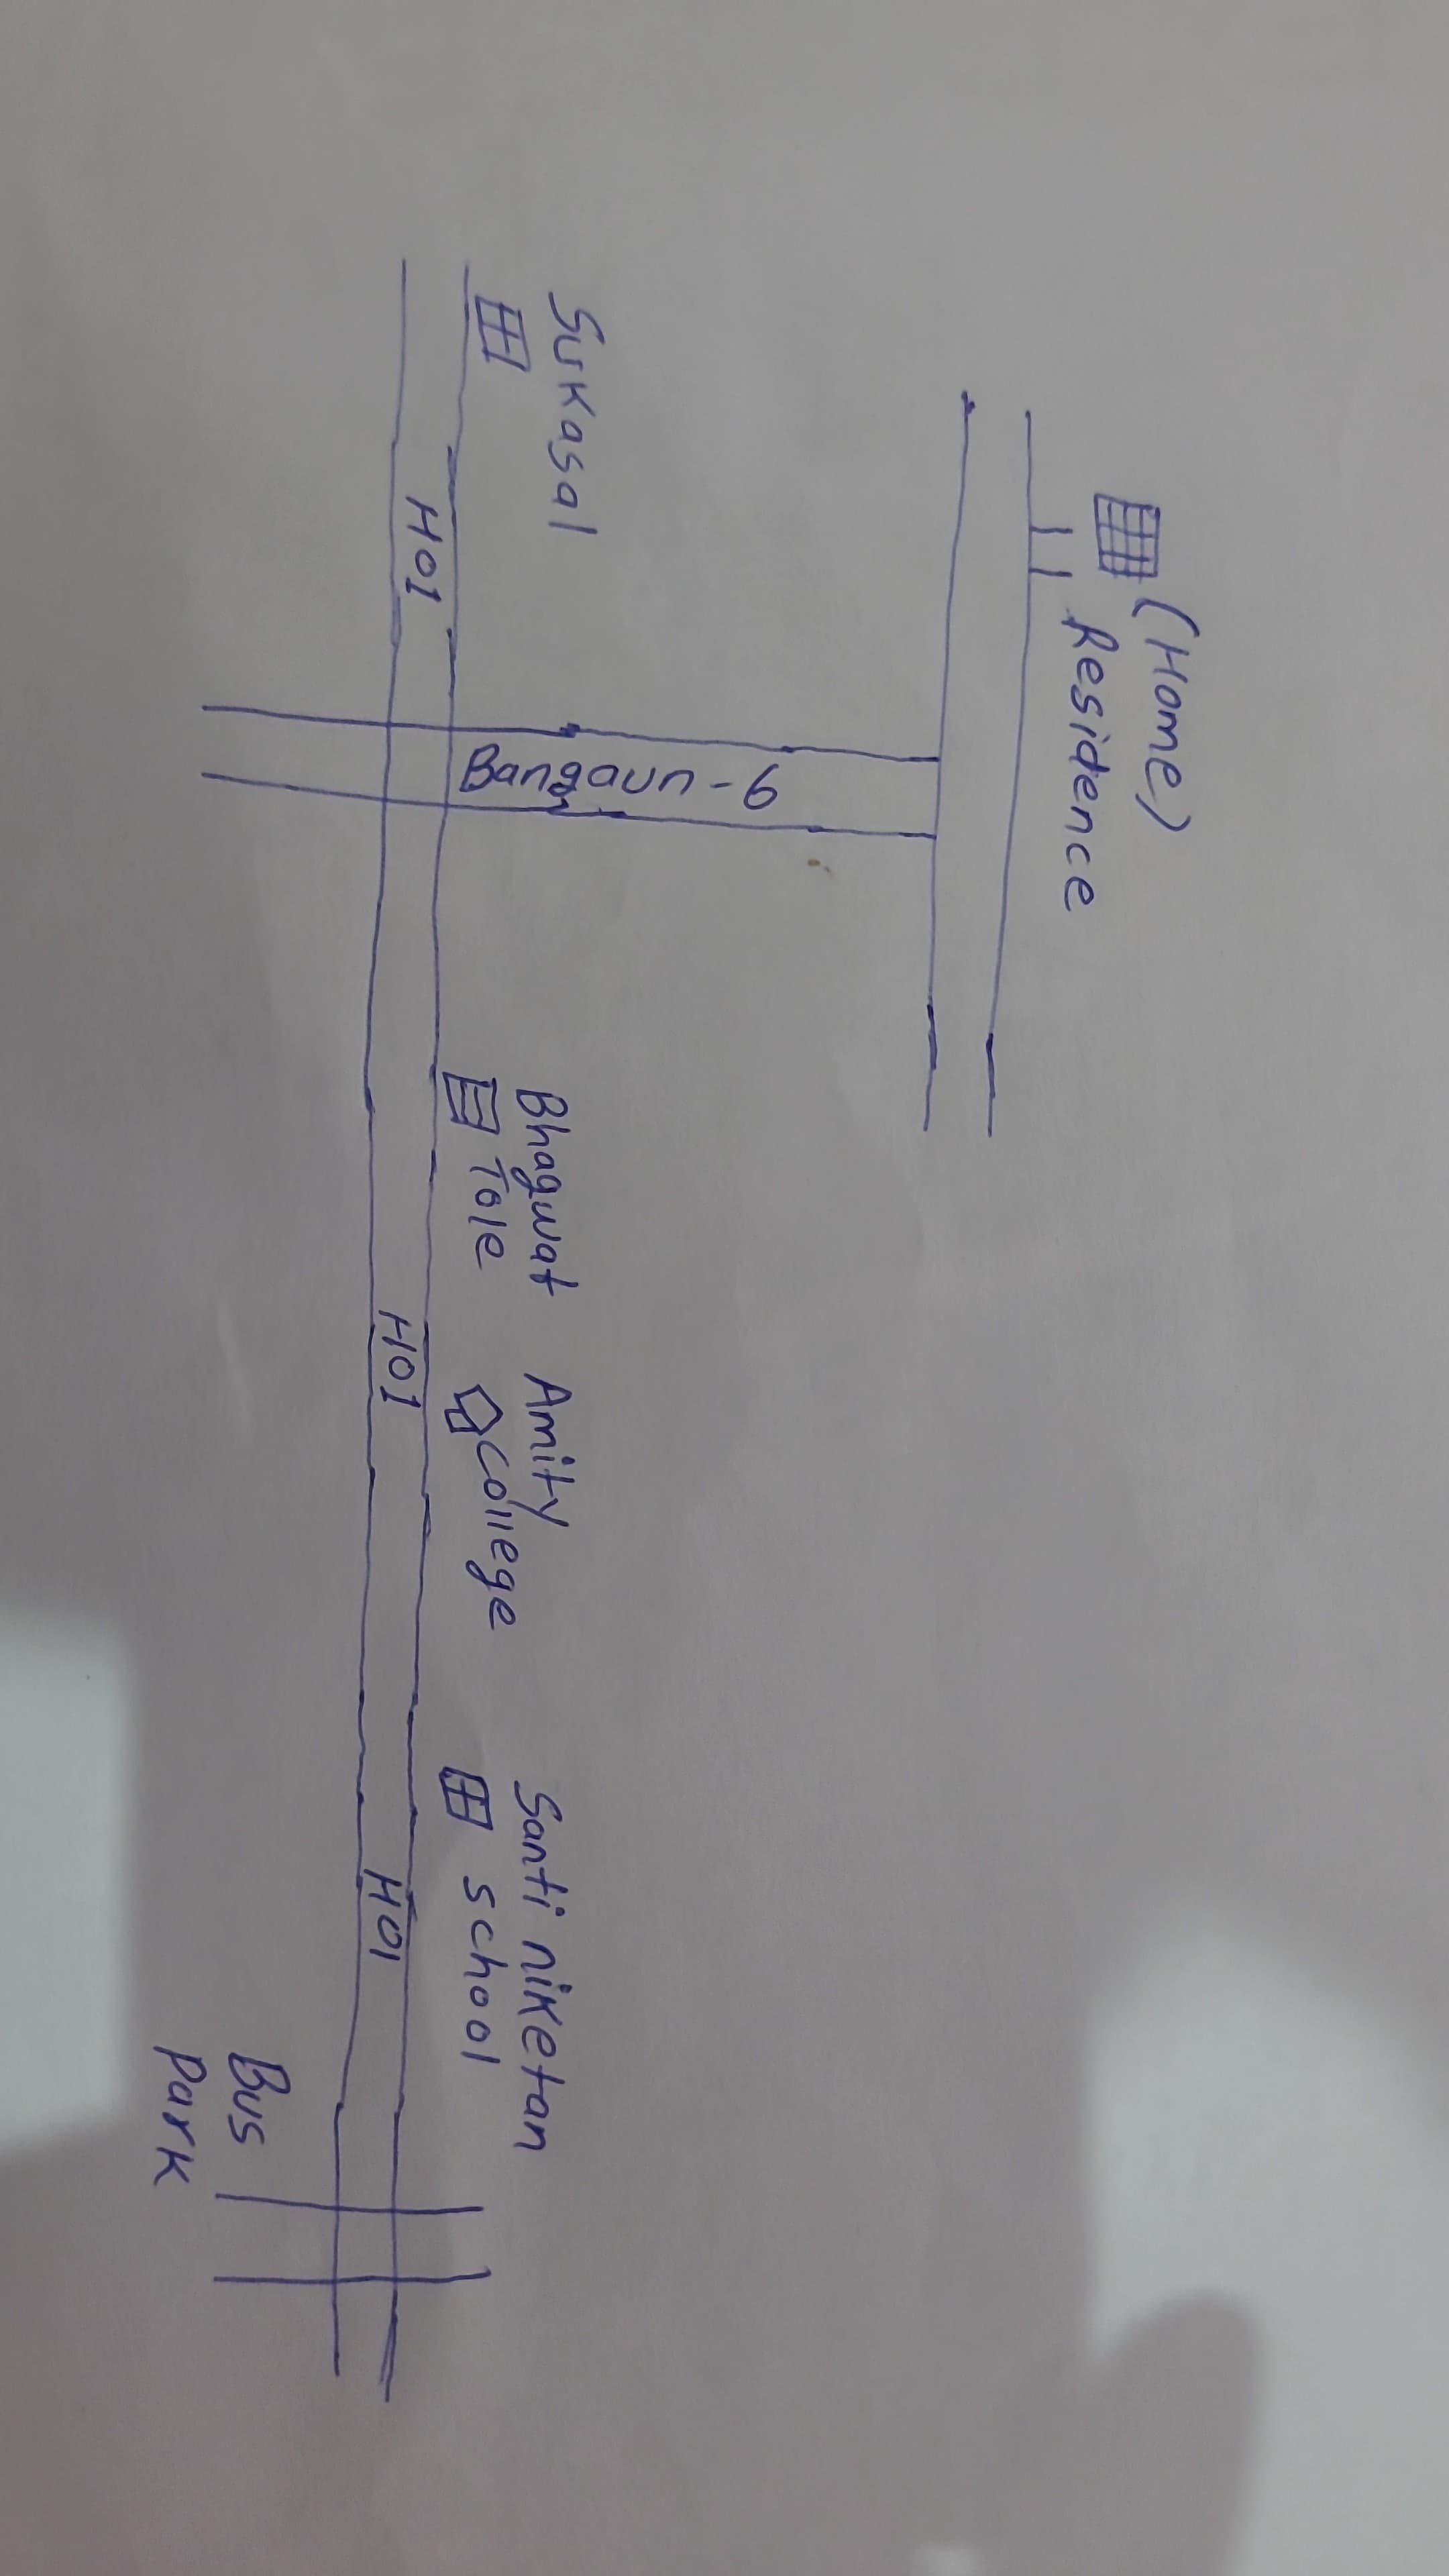 (Home)
Residence
Bangaun-6
Sukasal
Bhagwat
Tole
Amity
College
Santi niketan
school
H01
H01
H01
Bus
Park